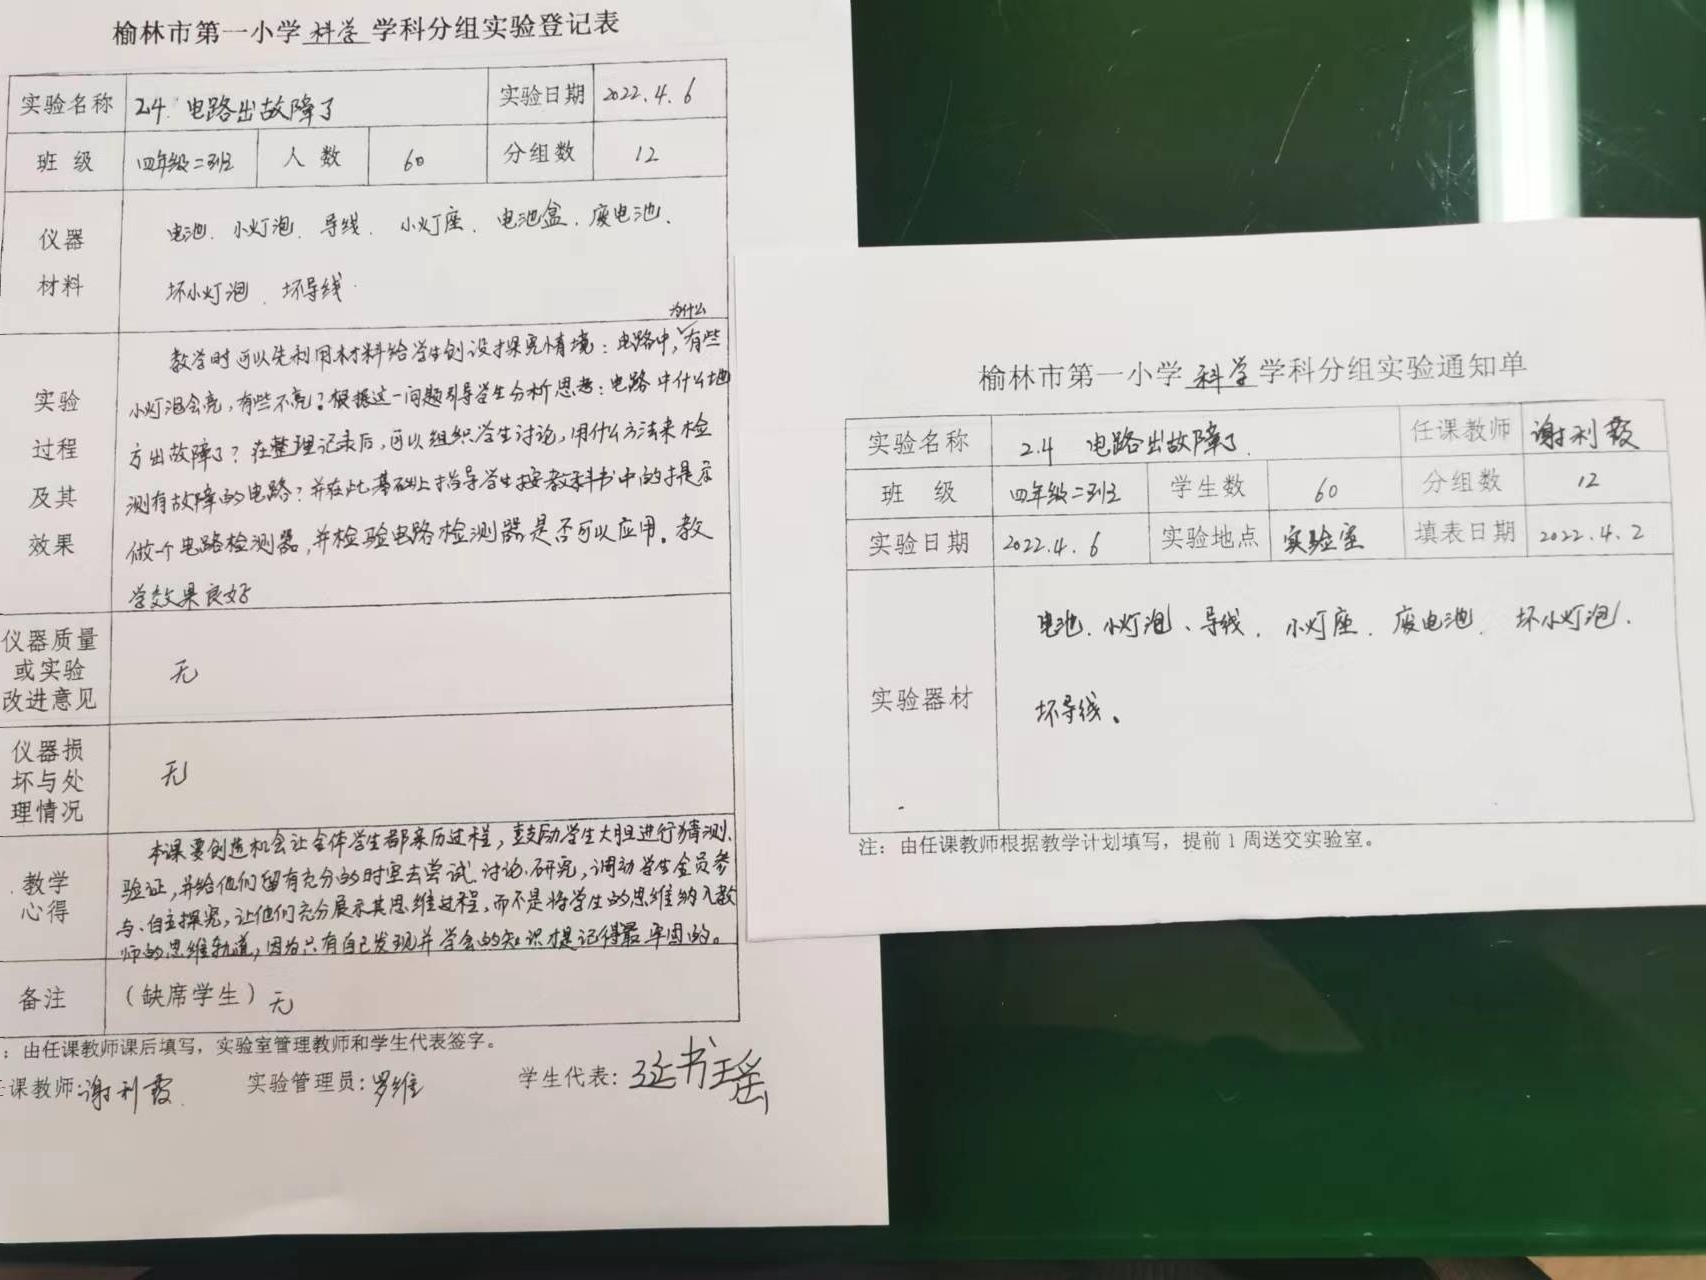 榆林市第一小学 科学 学科分组实验登记表
实验名称 2.4 电路出故障了 实验日期 2022.4.6
班 级 四年级二班 人 数 60 分组数 12
仪器
材料
电池、小灯泡、导线、小灯座、电池盒、废电池、
坏小灯泡、坏导线.
实验
过程
及其
效果
为什么
教学时可以先利用材料给学生创设探究情境：电路中，有些
小灯泡会亮，有些不亮？根据这一问题引导学生分析思考：电路中什么地
方出故障了？在整理记录后，可以组织学生讨论，用什么方法来检
测有故障的电路？并在此基础上指导学生按教科书中的提示
做一个电路检测器，并检验电路检测器是否可以应用。教
学效果良好
仪器质量
或实验
改进意见
无
仪器损
坏与处
理情况
无
教学
心得
本课要创造机会让全体学生都亲历过程，鼓励学生大胆进行猜测、
验证，并给他们留有充分的时空去尝试、讨论、研究，调动学生全员参
与、自主探究，让他们充分展示其思维过程，而不是将学生的思维纳入教
师的思维轨道，因为只有自己发现并学会的知识才是记得最牢固的。
备注 （缺席学生）无
：由任课教师课后填写，实验室管理教师和学生代表签字。
课教师：谢利霞 实验管理员：罗维 学生代表：延书瑶
榆林市第一小学 科学 学科分组实验通知单
实验名称 2.4 电路出故障了. 任课教师 谢利霞
班 级 四年级二班 学生数 60 分组数 12
实验日期 2022.4.6 实验地点 实验室 填表日期 2022.4.2
实验器材
电池、小灯泡、导线、小灯座、废电池、坏小灯泡、
坏导线。
注：由任课教师根据教学计划填写，提前1周送交实验室。